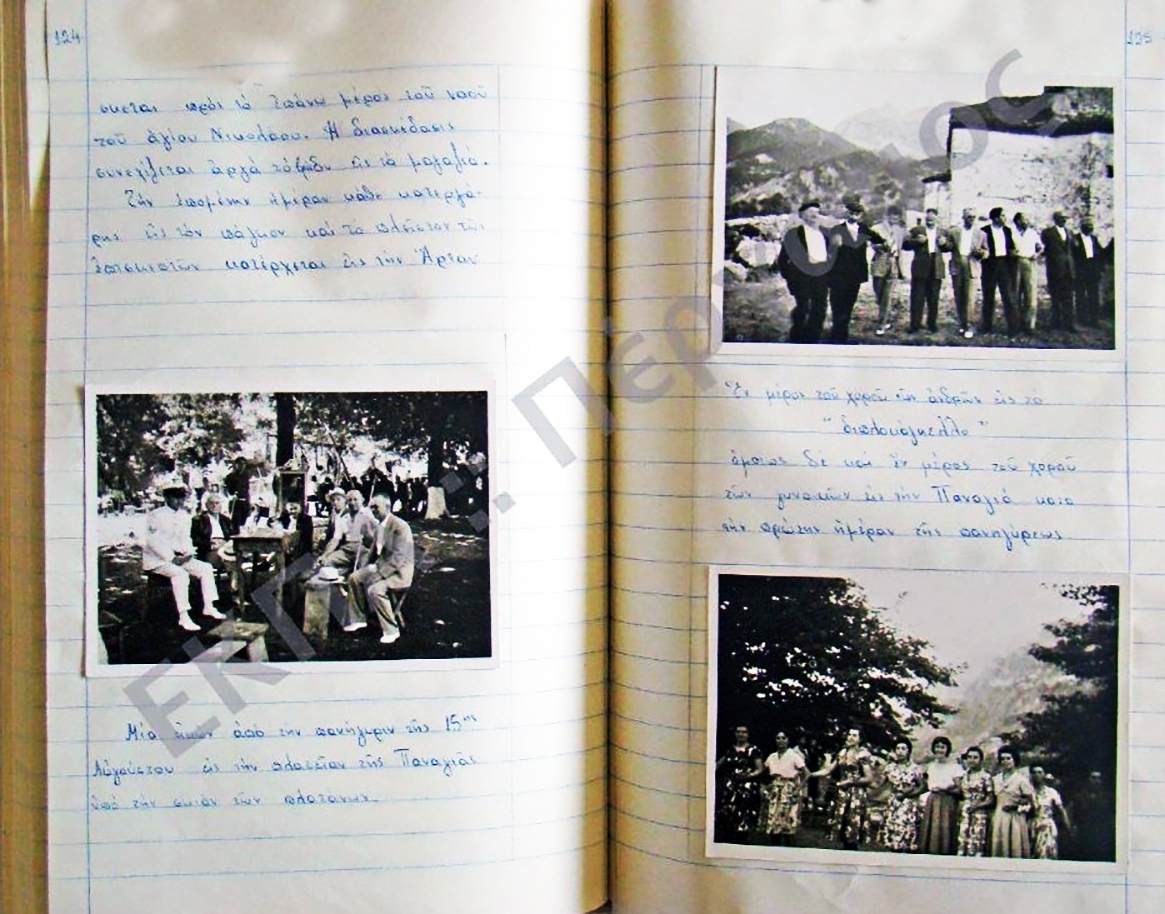 124
σκεται πρὸς τὸ ἐπάνω μέρος τοῦ ναοῦ
τοῦ ἁγίου Νικολάου. Ἡ διασκέδασις
συνεχίζεται ἀργὰ τὸ βράδυ εἰς τὰ μαγαζιά.
Τὴν ἑπομένην ἡμέραν κάθε κατεργά-
ρης εἰς τὸν πάγκον καὶ τὸ πλεῖστον τῶν
ἐπισκεπτῶν κατέρχεται εἰς τὴν Ἄρταν
Μία εἰκὼν ἀπὸ τὴν πανήγυριν τῆς 15ης
Αὐγούστου εἰς τὴν πλατεῖαν τῆς Παναγιᾶς
ὑπὸ τὴν σκιὰν τῶν πλατάνων.
125
Ἓν μέρος τοῦ χοροῦ τῶν ἀνδρῶν εἰς τὸ
"διπλοκάγκελλο"
ὁμοίως δὲ καὶ ἓν μέρος τοῦ χοροῦ
τῶν γυναικῶν εἰς τὴν Παναγιὰ κατὰ
τὴν πρώτην ἡμέραν τῆς πανηγύρεως